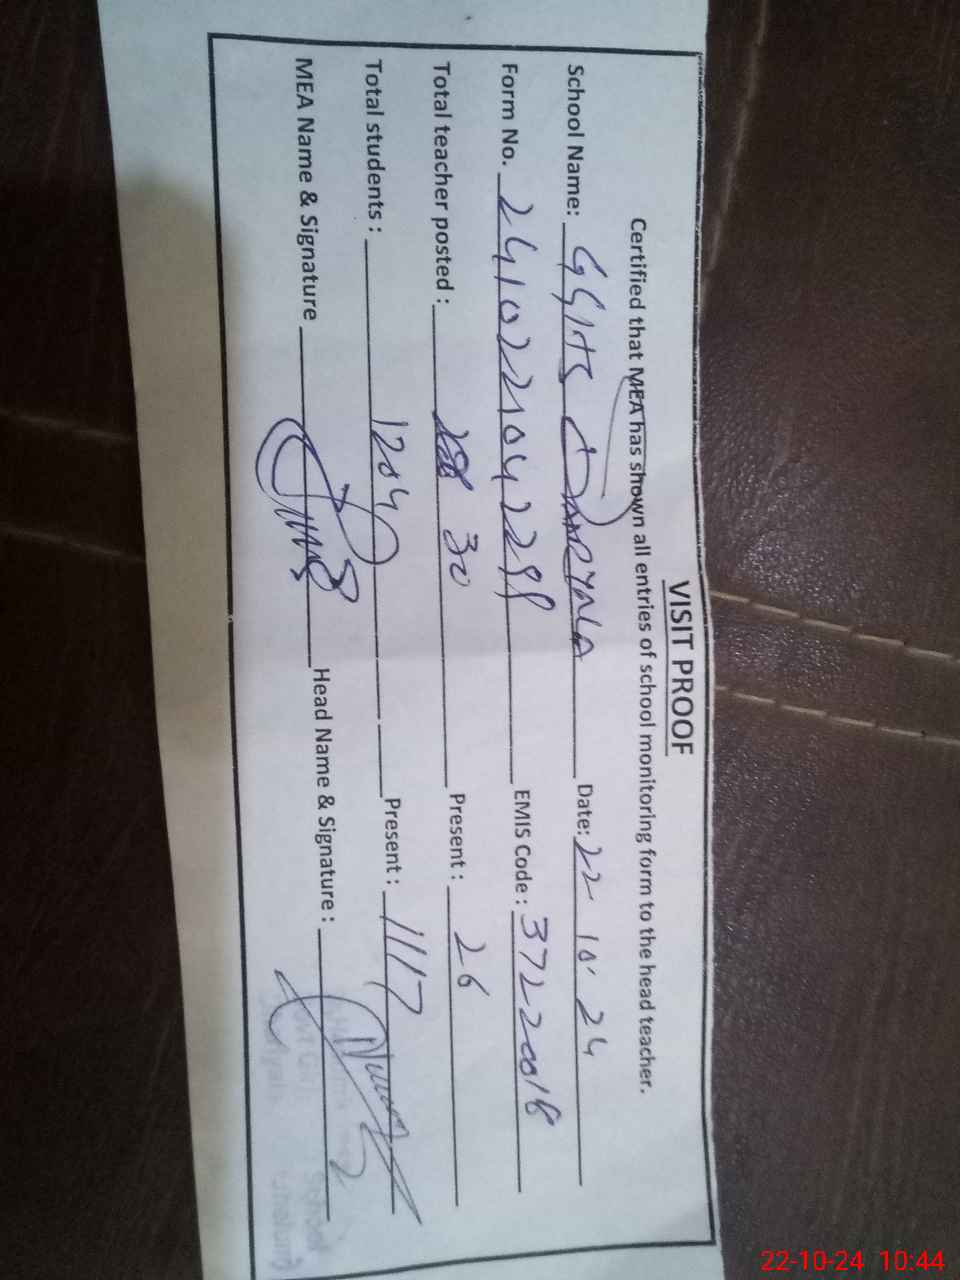 VISIT PROOF
Certified that MEA has shown all entries of school monitoring form to the head teacher.
School Name: GGHS Date: 22 10 24
Form No. 241022104228 EMIS Code : 37220018
Total teacher posted : 30 Present : 26
Total students : 1204 Present : 1117
MEA Name & Signature Head Name & Signature :
School
22-10-24 10:44